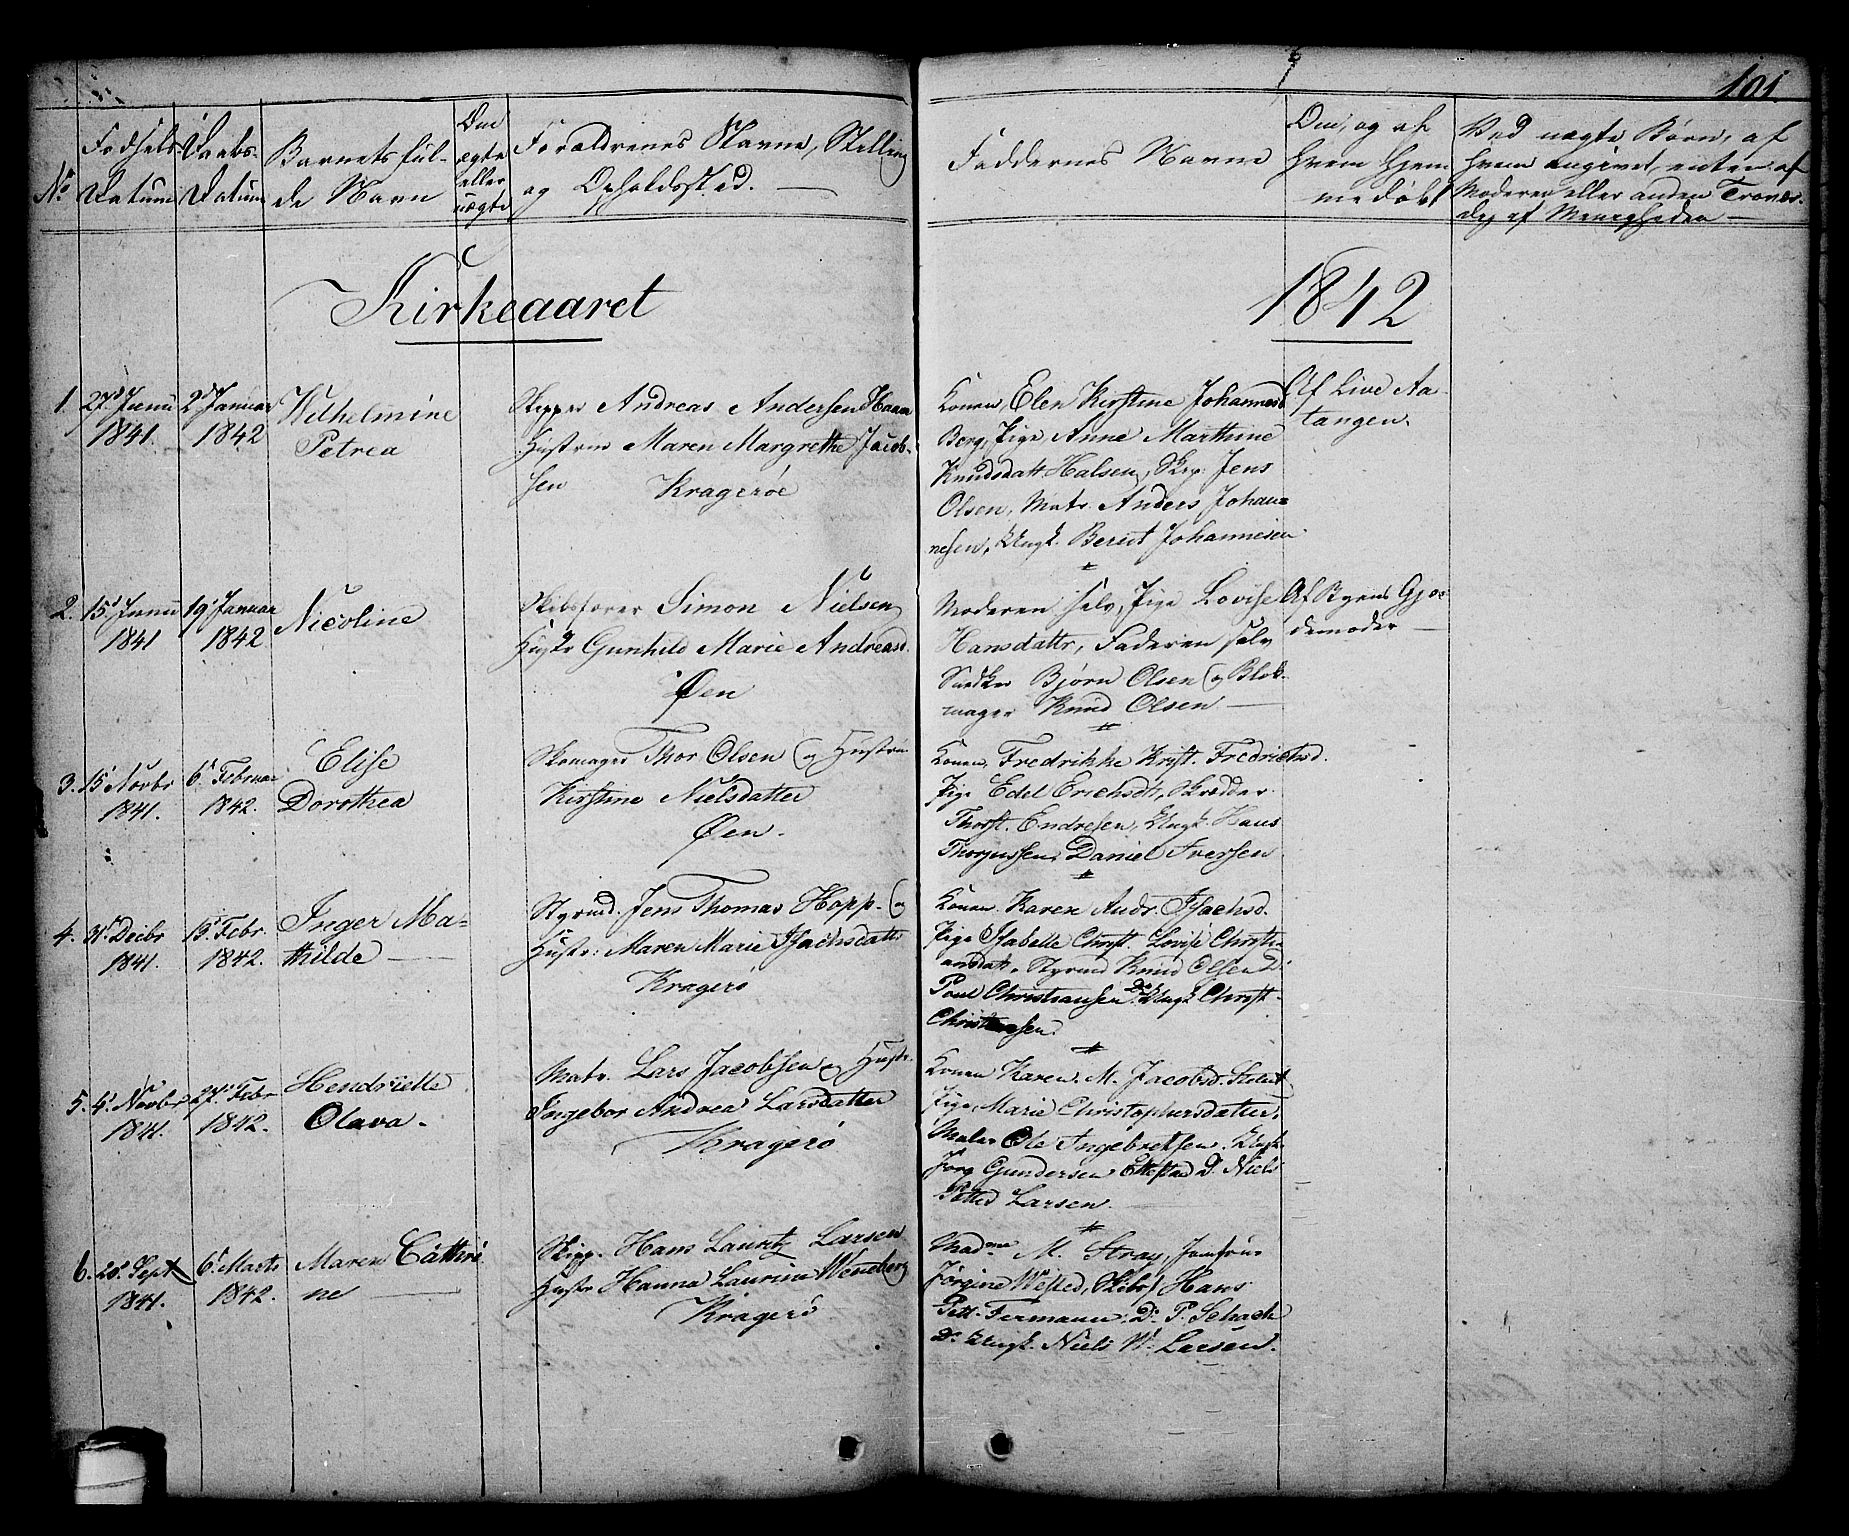 101.
No
Fødsels-
Datum
Daabs-
Datum
Barnets ful-
de Navn
Om
ægte
eller
uægte
Forældrenes Navne, Stilling
og Opholdssted.
Faddernes Navne
Om, og af
hvem hjem
medøbt
Ved uægte Børn, af
hvem angivet, enten af
Moderen eller anden Troværd-
dig af Menigheden
Kirkeaaret
1842
1.
27d Junii
1841.
2d Januar
1842
Wilhelmine
Petrea
Skipper Andreas Andersen
Hustru Maren Margrethe Jacob-
sen Kragerøe
Konen, Elen Kirstine Johannesd
Berg, Pige Anne Marthine
Knudsdatt Halsen, Skp. Jens
Olsen, Matr. Anders Johan-
nesen, Ungk. Berut Johannesen
Af Live Aa-
tangen.
2.
15d Junii
1841
19d Januar
1842
Nicoline
Skibsfører Simon Nielsen
Hustr Gunhild Marie Andreasd.
Øen
Moderen selv, Pige Lovise
Hansdattr, Faderen selv
Snedker Bjørn Olsen og Blok-
mager Knud Olsen
Af Byens Gjor
demoder
3.
15d Novbr
1841.
6d Februar
1842.
Elise
Dorothea
Skomager Thor Olsen og Hustru
Kirstine Nielsdatter
Øen.
Konen, Fredrikke Krist. Fredrichsd.
Pige Edel Erichsdt, Skrædder
Thorst. Endresen, Ungk. Hans
Thorjussen, Daniel Iversen
4.
31d Decbr
1841.
13d Febr.
1842.
Inger Ma-
thilde
Styrmd. Jens Thomas Hopp. og
Hustr: Maren Marie Isachsdattr
Kragerø
Konen Karen Andr. Isachsd.
Pige Isabelle Christ. Lovise Christi-
ansdatt. Styrmd Knud Olsen Do
Poul Christiansen Do Ungk Christ-
Christensen.
5.
4d Novbr
1841.
27d Febr
1842.
Hendriette
Olava.
Matr. Lars Jacobsen og Hustr.
Ingebor Andrea Larsdatter
Kragerø
Konen Karen. M. Jacobsd.
Pige, Marie Christophersdatter,
Maler Ole Ingebretsen. Ungk.
Jørg Gundersen Eckestad Do Niels
Petted Larsen.
6.
20d Sept
1841.
6d Marts
1842.
Maren Cathri
ne
Skipp. Hans Lauritz Larsen
Hustr Hanna Laurine Wenneberg
Kragerø
Madme M. Stray, Jomfrue
Jørgine Wefted, Skibsf Hans
Pett. Fermann, Do P. Schack
Do Ungk. Niels W. Larsen.